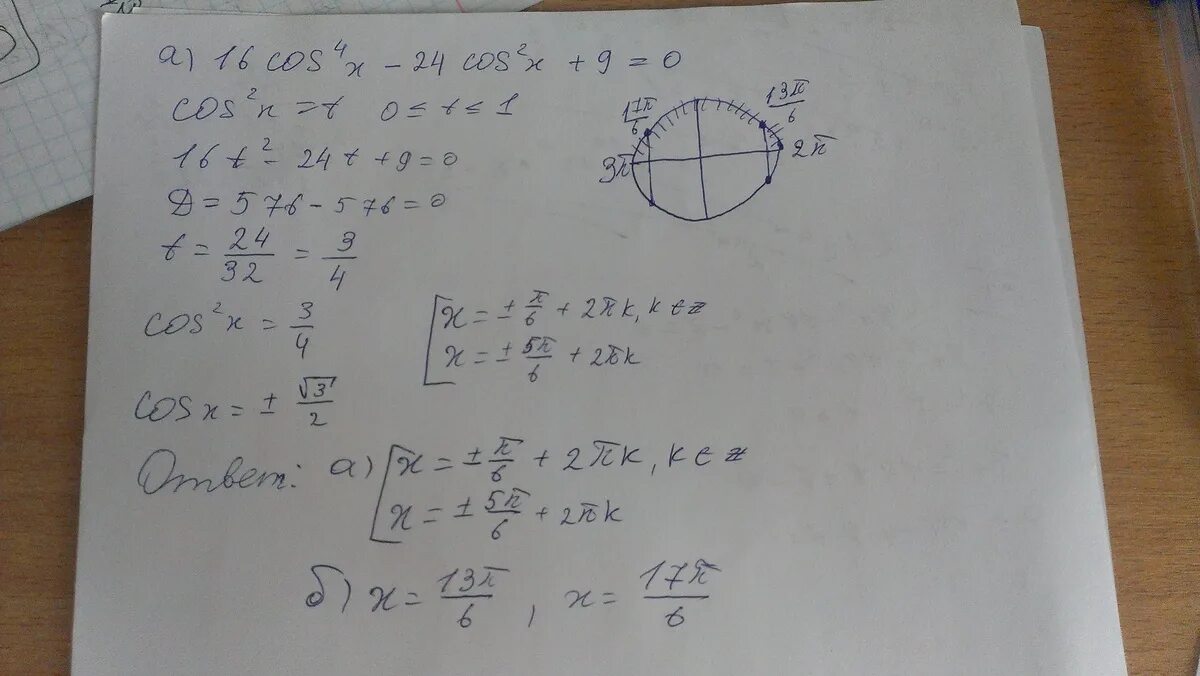 а) 16 cos⁴x − 24 cos²x + 9 = 0
cos²x = t 0 ≤ t ≤ 1
16t² − 24t + 9 = 0
Д = 576 − 576 = 0
t = 24/32 = 3/4
cos²x = 3/4
cos x = ± √3/2
17π/6
13π/6
3π
2π
[x = ± π/6 + 2πk, k ∈ z
x = ± 5π/6 + 2πk
Ответ: а) [x = ± π/6 + 2πk, k ∈ z
x = ± 5π/6 + 2πk
б) x = 13π/6 , x = 17π/6